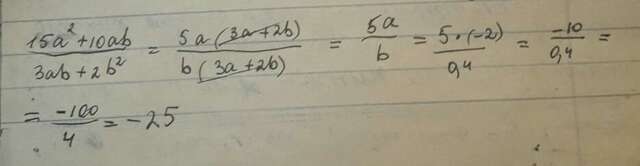 (15a²+10ab)/(3ab+2b²) = (5a(3a+2b))/(b(3a+2b)) = 5a/b = (5·(-2))/0,4 = -10/0,4 =
= -100/4 = -25